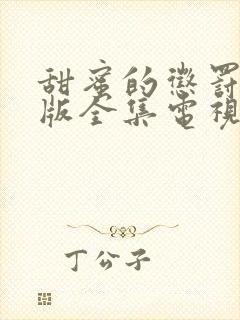 甜蜜的懲罰
版全集電視
丁公子